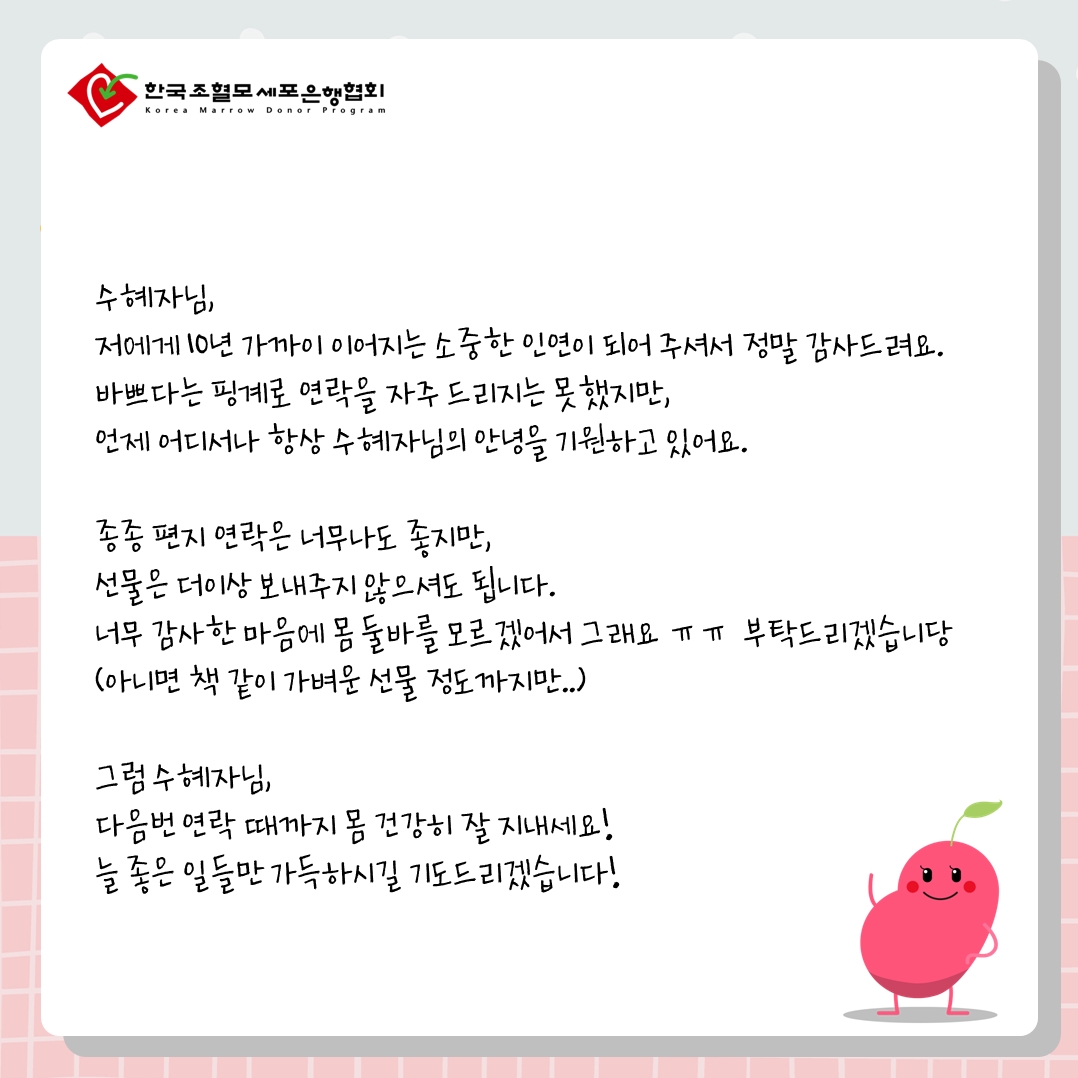 한국조혈모세포은행협회
Korea Marrow Donor Program
수혜자님,
저에게 10년 가까이 이어지는 소중한 인연이 되어 주셔서 정말 감사드려요.
바쁘다는 핑계로 연락을 자주 드리지는 못했지만,
언제 어디서나 항상 수혜자님의 안녕을 기원하고 있어요.
종종 편지 연락은 너무나도 좋지만,
선물은 더이상 보내주지 않으셔도 됩니다.
너무 감사한 마음에 몸 둘바를 모르겠어서 그래요 ㅠㅠ 부탁드리겠습니당
(아니면 책 같이 가벼운 선물 정도까지만..)
그럼 수혜자님,
다음번 연락 때까지 몸 건강히 잘 지내세요!
늘 좋은 일들만 가득하시길 기도드리겠습니다!